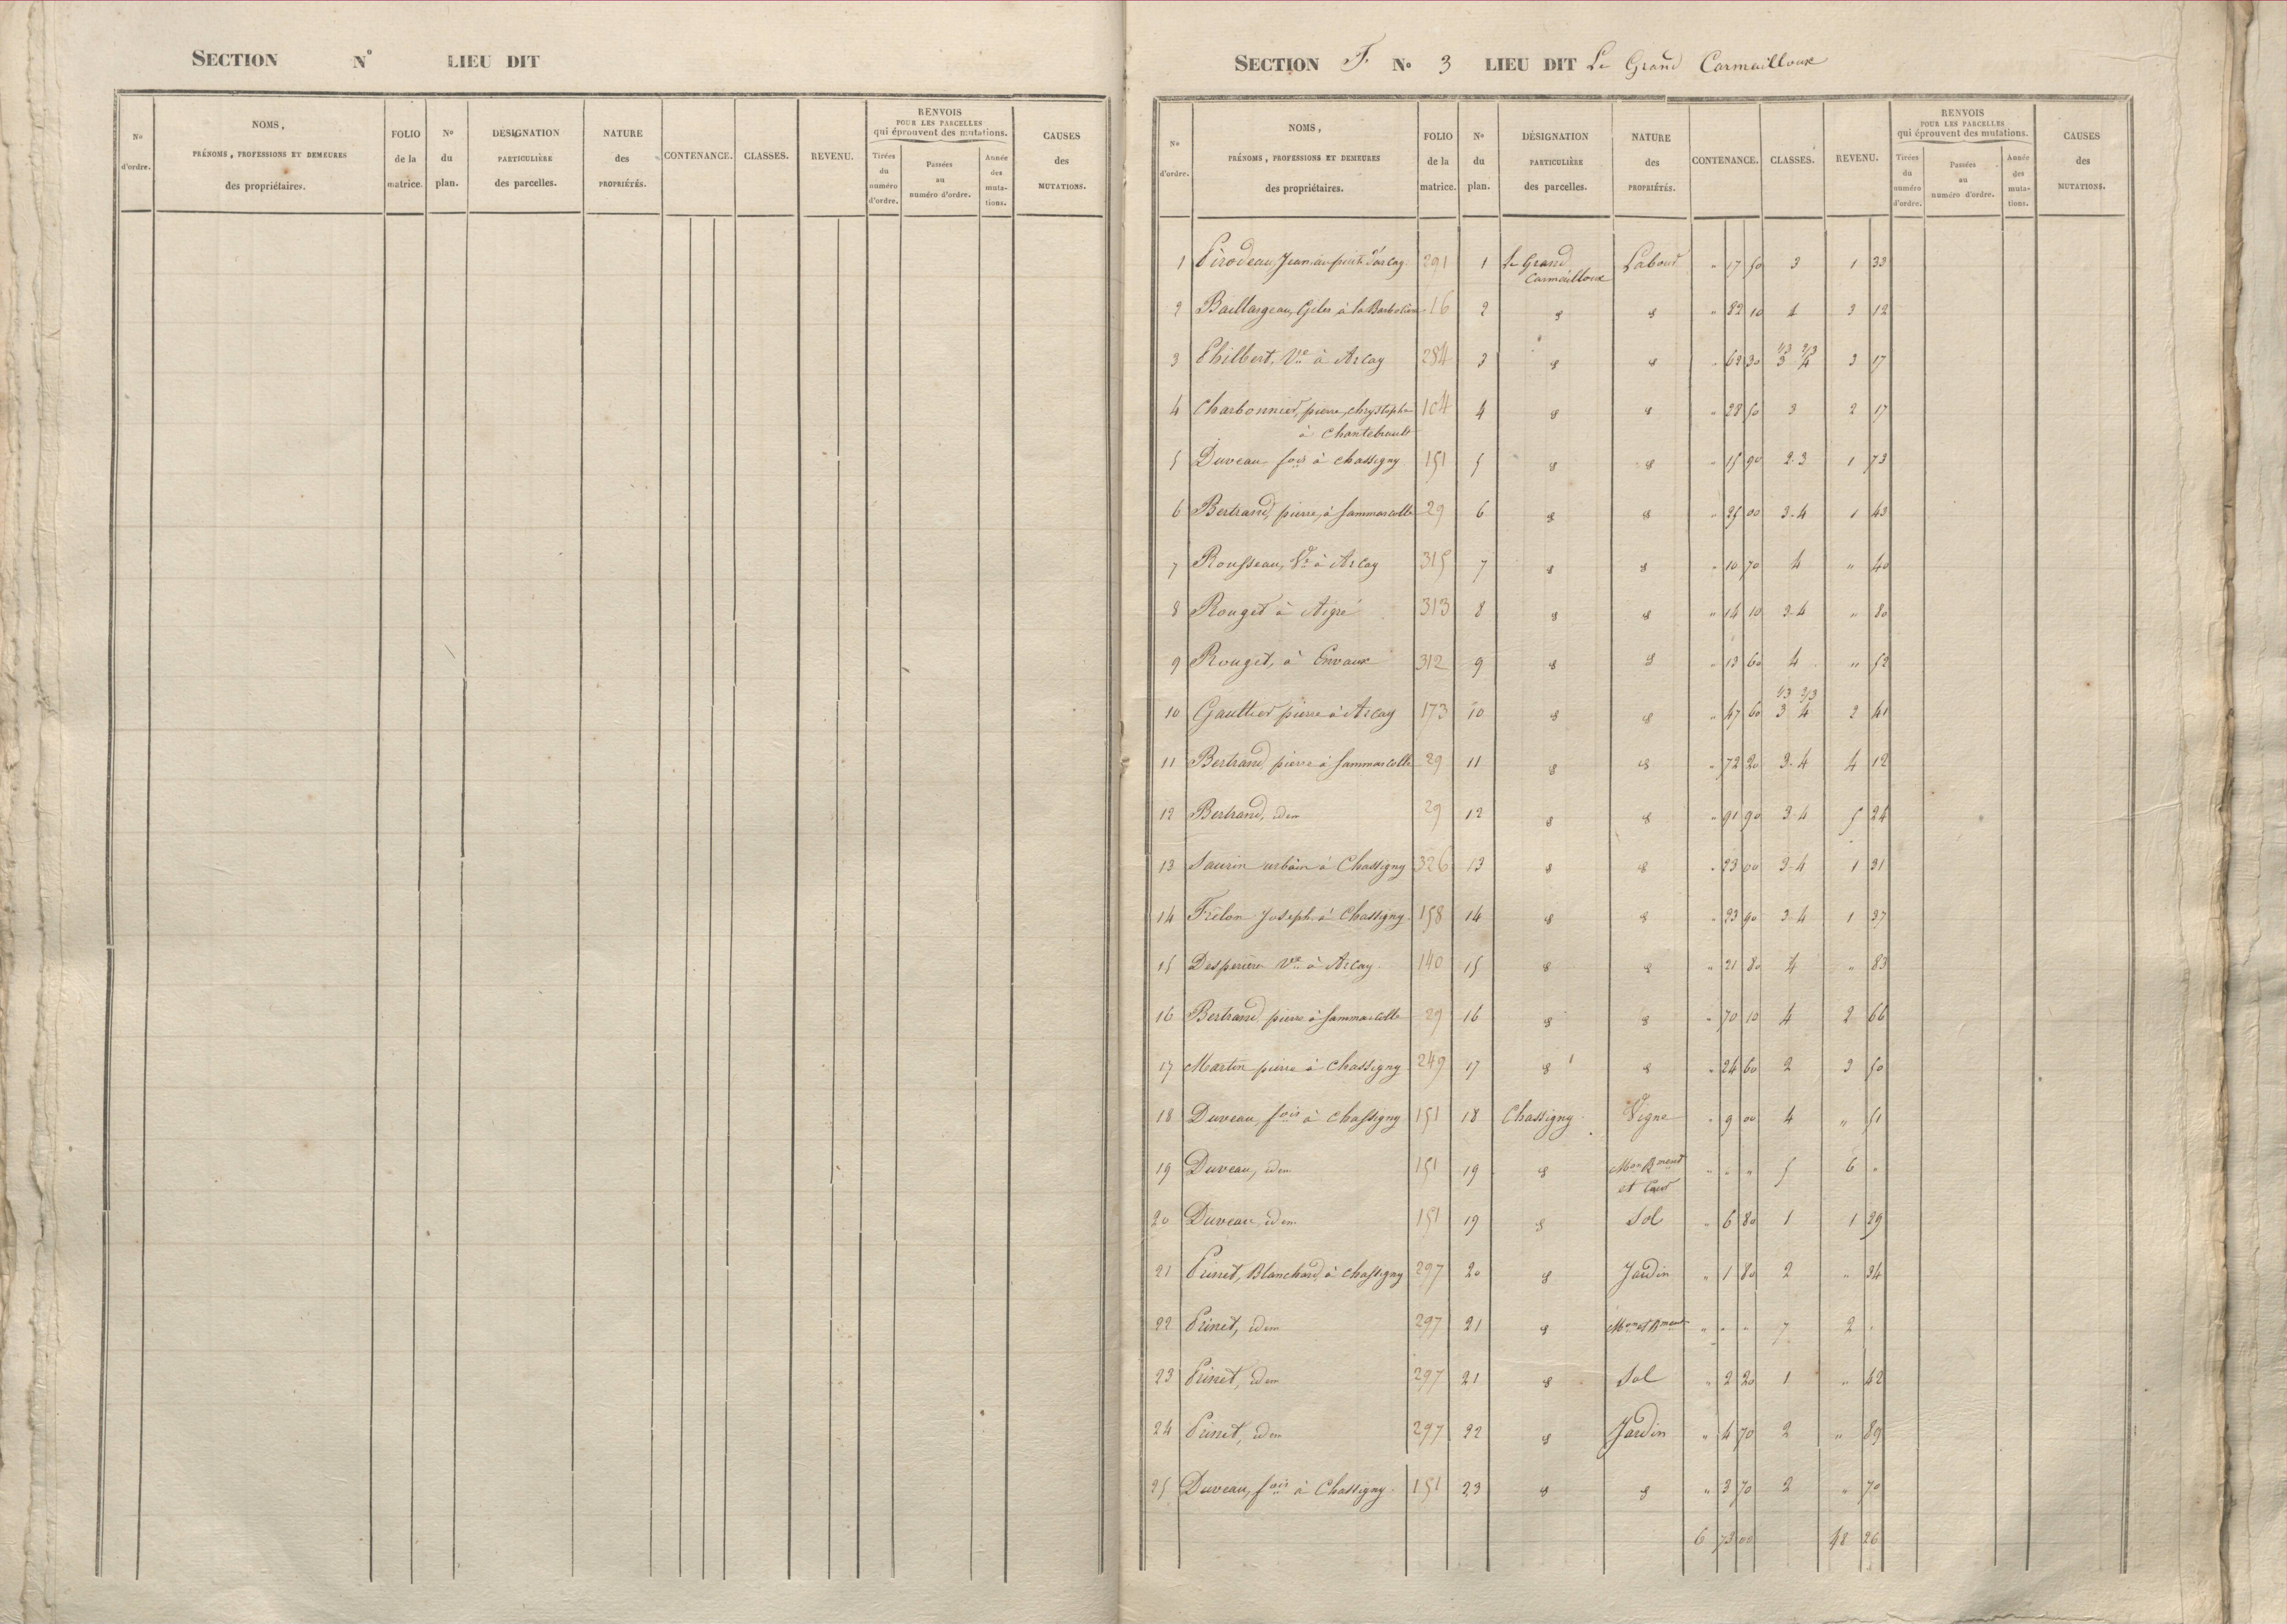 SECTION N° LIEU DIT
N° d'ordre. NOMS, PRÉNOMS, PROFESSIONS ET DEMEURES des propriétaires. FOLIO de la matrice. N° du plan. DÉSIGNATION PARTICULIÈRE des parcelles. NATURE des PROPRIÉTÉS. CONTENANCE. CLASSES. REVENU. RENVOIS POUR LES PARCELLES qui éprouvent des mutations. Tirées du numéro d'ordre. Passées au numéro d'ordre. Année des mutations. CAUSES des MUTATIONS.
SECTION F. N° 3 LIEU DIT Le Grand Carmailloux
N° d'ordre. NOMS, PRÉNOMS, PROFESSIONS ET DEMEURES des propriétaires. FOLIO de la matrice. N° du plan. DÉSIGNATION PARTICULIÈRE des parcelles. NATURE des PROPRIÉTÉS. CONTENANCE. CLASSES. REVENU. RENVOIS POUR LES PARCELLES qui éprouvent des mutations. Tirées du numéro d'ordre. Passées au numéro d'ordre. Année des mutations. CAUSES des MUTATIONS.
1 Pirodeau, Jean 291 1 Le Grand Labour " 17 50 3 1 33
Carmailloux
2 Baillargeau, Giles à la 16 2 " " " 82 10 4 3 12
3 Philbert, Ve à Arcay 284 3 " " " 62 30 1/3 3 2/3 4 3 17
4 Charbonnier, pierre chrystophe 104 4 " " " 28 50 3 2 17
à Chantebrault
5 Duveau, fois à chassigny 151 5 " " " 15 90 2-3 1 73
6 Bertrand, pierre, à Sammarcolle 29 6 " " " 25 00 3-4 1 43
7 Rousseau, Ve à Arcay 315 7 " " " 10 70 4 " 40
8 Rouget à Aigré 313 8 " " " 14 10 3-4 " 80
9 Rouget, à Envaux 312 9 " " " 13 60 4 " 52
10 Gaultier pierre à Arcay 173 10 " " " 47 60 1/3 3 2/3 4 2 41
11 Bertrand, pierre à Sammarcolle 29 11 " " " 72 20 3-4 4 12
12 Bertrand, idem 29 12 " " " 91 90 3-4 5 24
13 Saurin urbain à Chassigny 326 13 " " " 23 00 3-4 1 31
14 Frélon Joseph à Chassigny 158 14 " " " 23 90 3-4 1 37
15 Desperière Ve à Arcay 140 15 " " " 21 80 4 " 83
16 Bertrand, pierre à Sammarcolle 29 16 " " " 70 10 4 2 66
17 Martin pierre à Chassigny 249 17 " " " 24 60 2 3 50
18 Duveau, fois à Chassigny 151 18 Chassigny Vigne " 9 00 4 " 51
19 Duveau, idem 151 19 " Mon Bment " " " 5 6 "
et Cour
20 Duveau, idem 151 19 " Sol " 6 80 1 1 29
21 Prinet, Blanchard, à chassigny 297 20 " Jardin " 1 80 2 " 34
22 Prinet, idem 297 21 " Mon et Bment " " " 7 2 "
23 Prinet, idem 297 21 " Sol " 2 20 1 " 42
24 Prinet, idem 297 22 " Jardin " 4 70 2 " 89
25 Duveau, fois à Chassigny 151 23 " " " 3 70 2 " 70
6 73 00 48 26